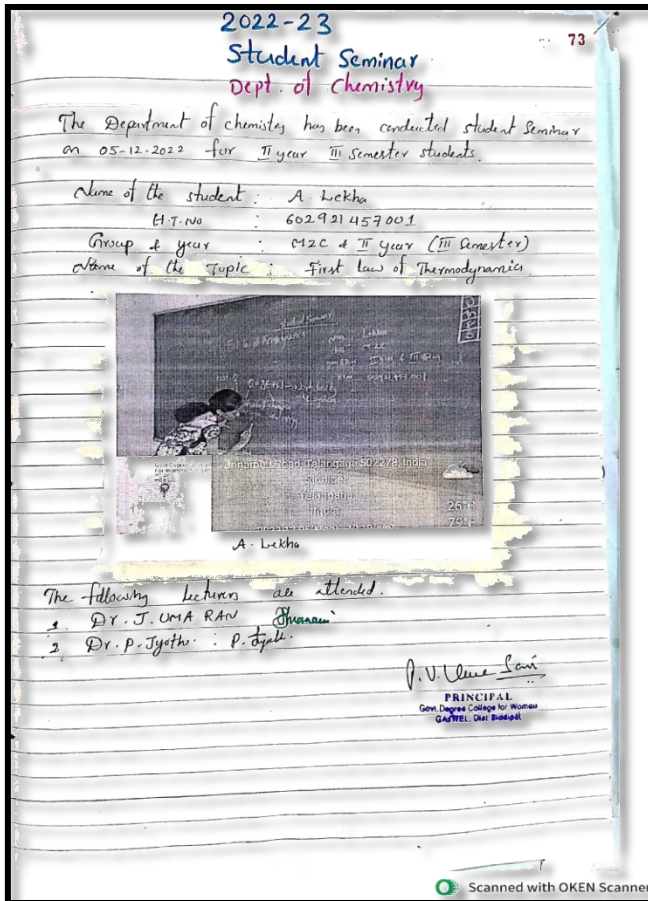 2022-23
73
Student Seminar
Dept. of Chemistry
The Department of chemistry has been conducted student Seminar
on 05-12-2022 for II year III Semester students.
Name of the student : A. Lekha
H.T.No : 602921457001
Group & year : MZC & II Year (III Semester)
Name of the Topic : First law of Thermodynamics
Lekha
Road, Telangana 502278, India
Siddipet
Telangana
India
26°
79°
A. Lekha
The following lecturers are attended.
1 Dr. J. UMA RAN
2 Dr. P. Jyothi : P. Jyothi
PRINCIPAL
Govt. Degree College for Women
GAJWEL, Dist Siddipet
Scanned with OKEN Scanner